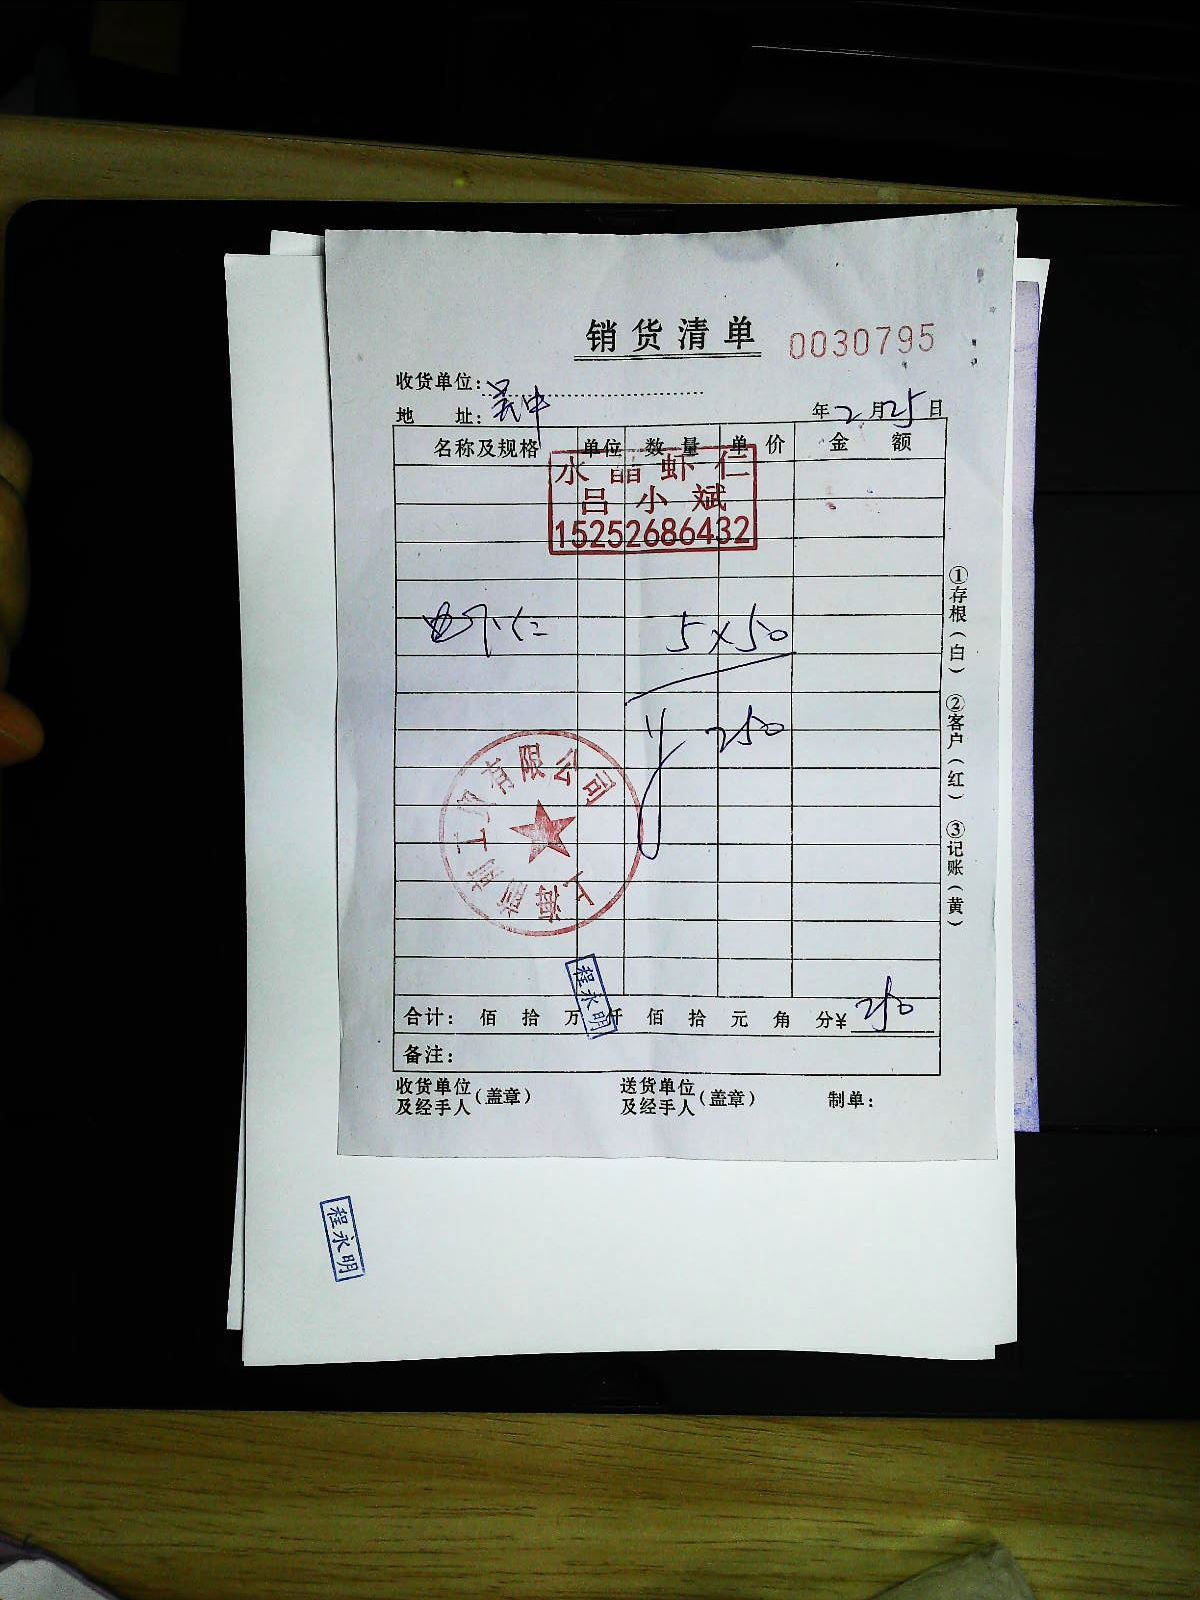 销货清单 0030795
收货单位:
地 址: 吴中 年2月25日
名称及规格 单位 数量 单价 金额
水晶虾仁
吕小斌
15252686432
虾仁 5×50
¥250
上海 工贸有限公司
程永明
合计: 佰 拾 万 仟 佰 拾 元 角 分¥ 250
备注:
收货单位及经手人(盖章) 送货单位及经手人(盖章) 制单:
①存根(白) ②客户(红) ③记账(黄)
程永明